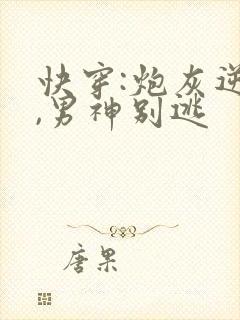 快穿:炮灰逆
,男神别逃
唐果